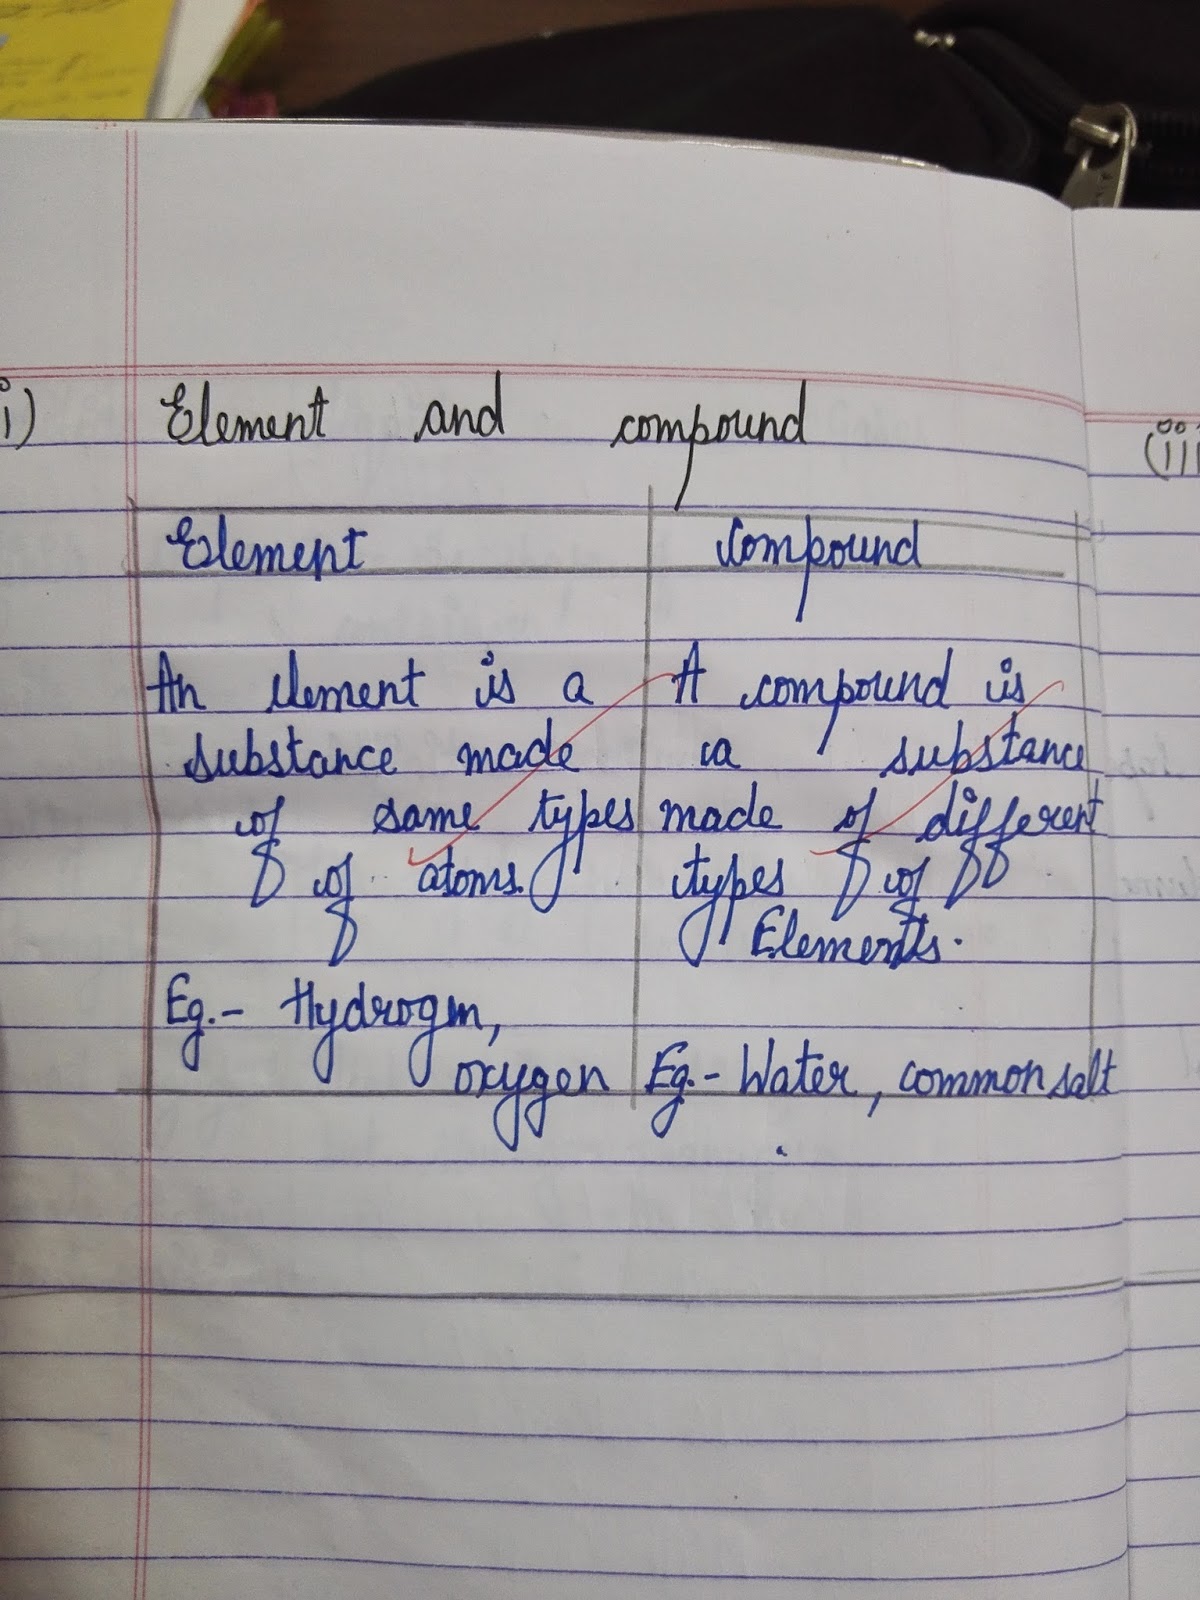 i) Element and compound
(iii
Element Compound
An element is a A compound is
substance made a substance
of same types made of different
of atoms. types of
Elements.
Eg.- Hydrogen,
oxygen Eg.- Water, common salt